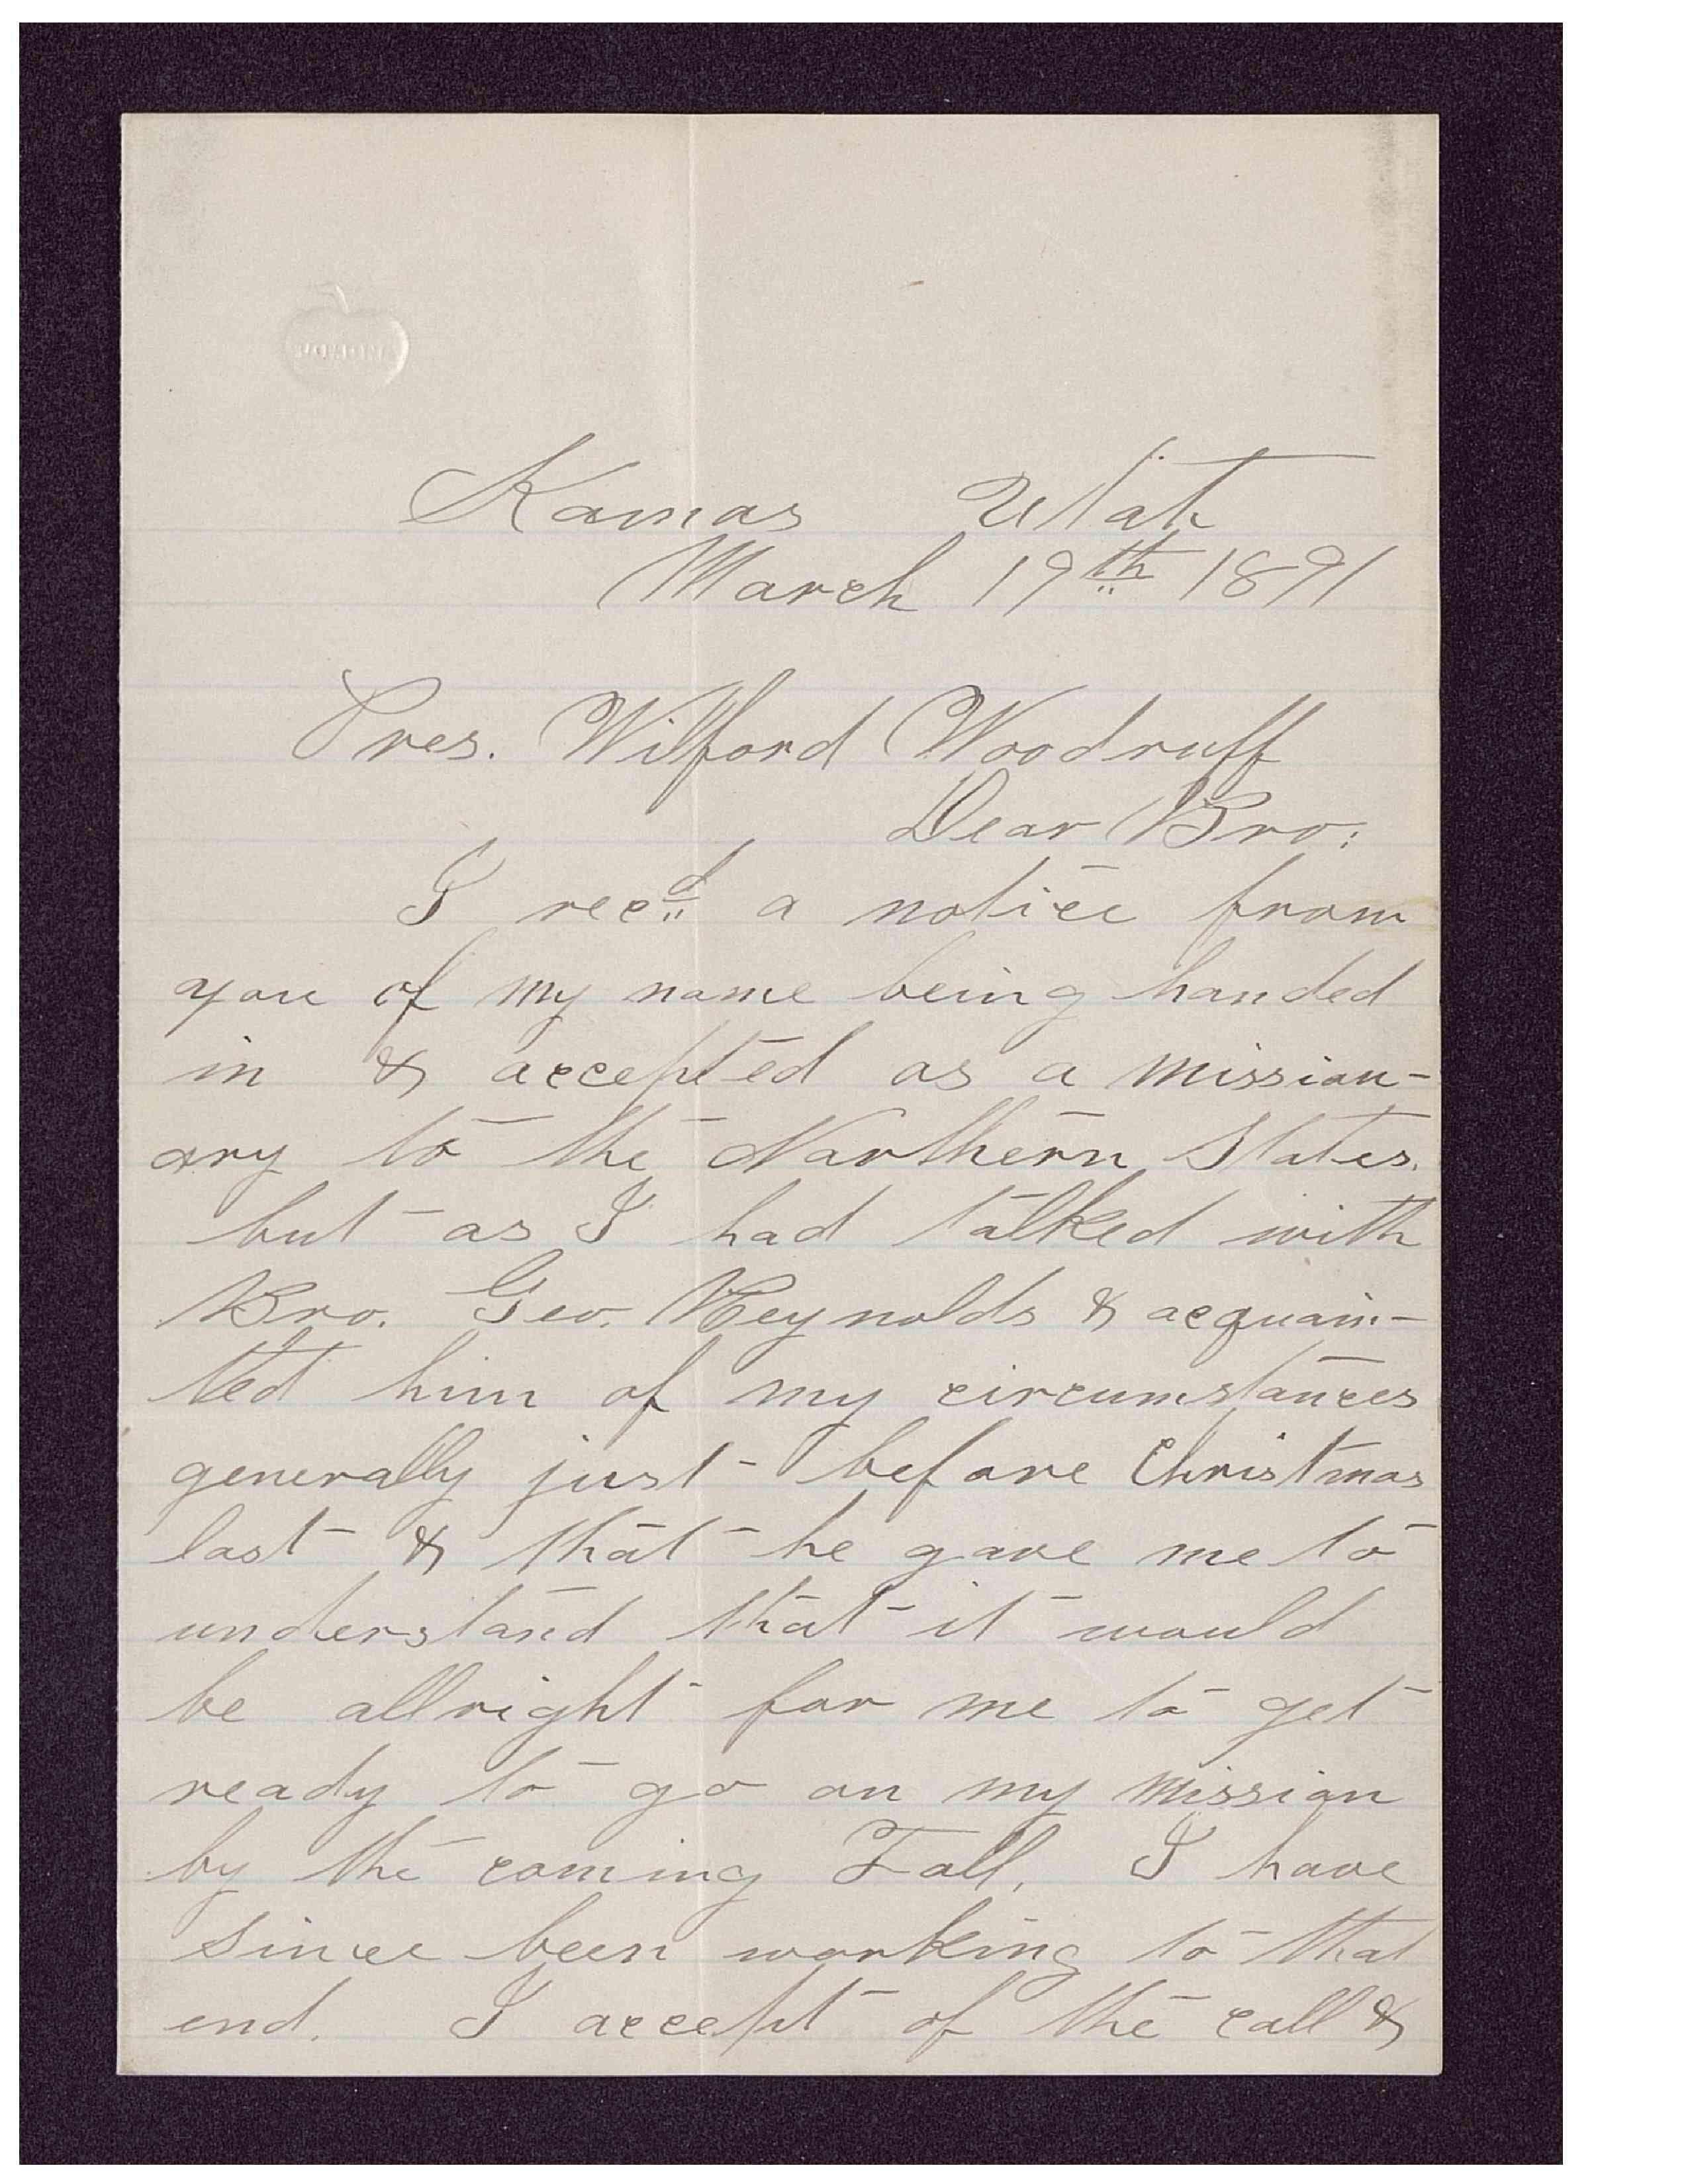 POMONA
Kamas Utah
March 19th 1891
Pres. Wilford Woodruff
Dear Bro:
I recd a notice from
you of my name being handed
in & accepted as a mission-
ary to the Northern States.
but as I had talked with
Bro. Geo. Reynolds & acquain-
ted him of my circumstances
generally just before Christmas
last & that he gave me to
understand that it would
be allright for me to get
ready to go on my mission
by the coming Fall, I have
since been working to that
end. I accept of the call &